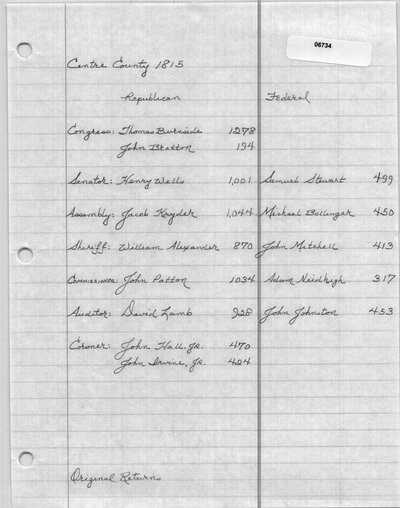 06734
Centre County 1815
Republican Federal
Congress: Thomas Burnside 1278
John Bratton 194
Senator: Henry Wells 1,001 Samuel Stewart 499
Assembly: Jacob Kryder 1,044 Michael Bollinger 450
Sheriff: William Alexander 870 John Mitchell 413
Commissioner: John Patton 1034 Adam 317
Auditor: David Lamb 928 John Johnston 453
Coroner: John Hall, Jr. 470
John Irvine, Jr. 424
Original Returns